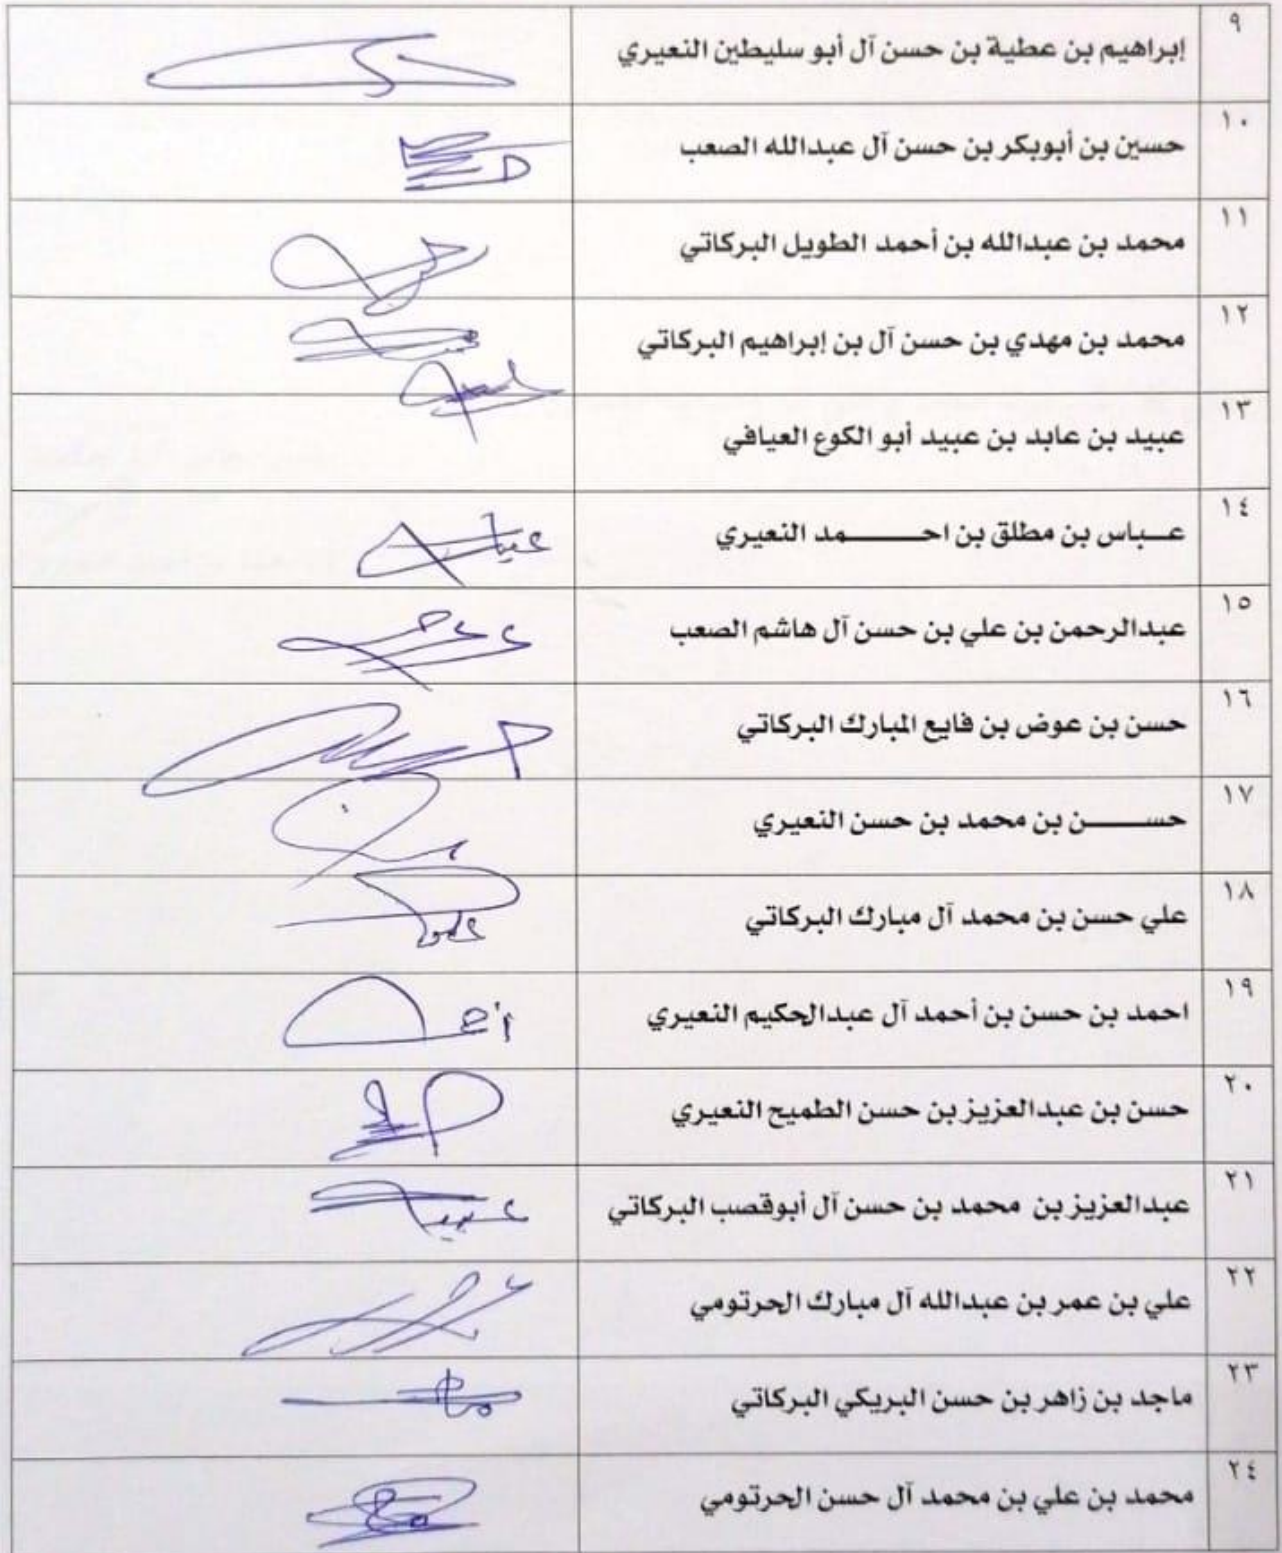 ٩ إبراهيم بن عطية بن حسن آل أبو سليطين النعيري
١٠ حسين بن أبوبكر بن حسن آل عبدالله الصعب
١١ محمد بن عبدالله بن أحمد الطويل البركاتي
١٢ محمد بن مهدي بن حسن آل بن إبراهيم البركاتي
١٣ عبيد بن عابد بن عبيد أبو الكوع العيافي
١٤ عـــباس بن مطلق بن احــــــــمد النعيري
١٥ عبدالرحمن بن علي بن حسن آل هاشم الصعب
١٦ حسن بن عوض بن فايع المبارك البركاتي
١٧ حســــــــن بن محمد بن حسن النعيري
١٨ علي حسن بن محمد آل مبارك البركاتي
١٩ احمد بن حسن بن أحمد آل عبدالحكيم النعيري
٢٠ حسن بن عبدالعزيز بن حسن الطميح النعيري
٢١ عبدالعزيز بن محمد بن حسن آل أبوقصب البركاتي
٢٢ علي بن عمر بن عبدالله آل مبارك الحرتومي
٢٣ ماجد بن زاهر بن حسن البريكي البركاتي
٢٤ محمد بن علي بن محمد آل حسن الحرتومي